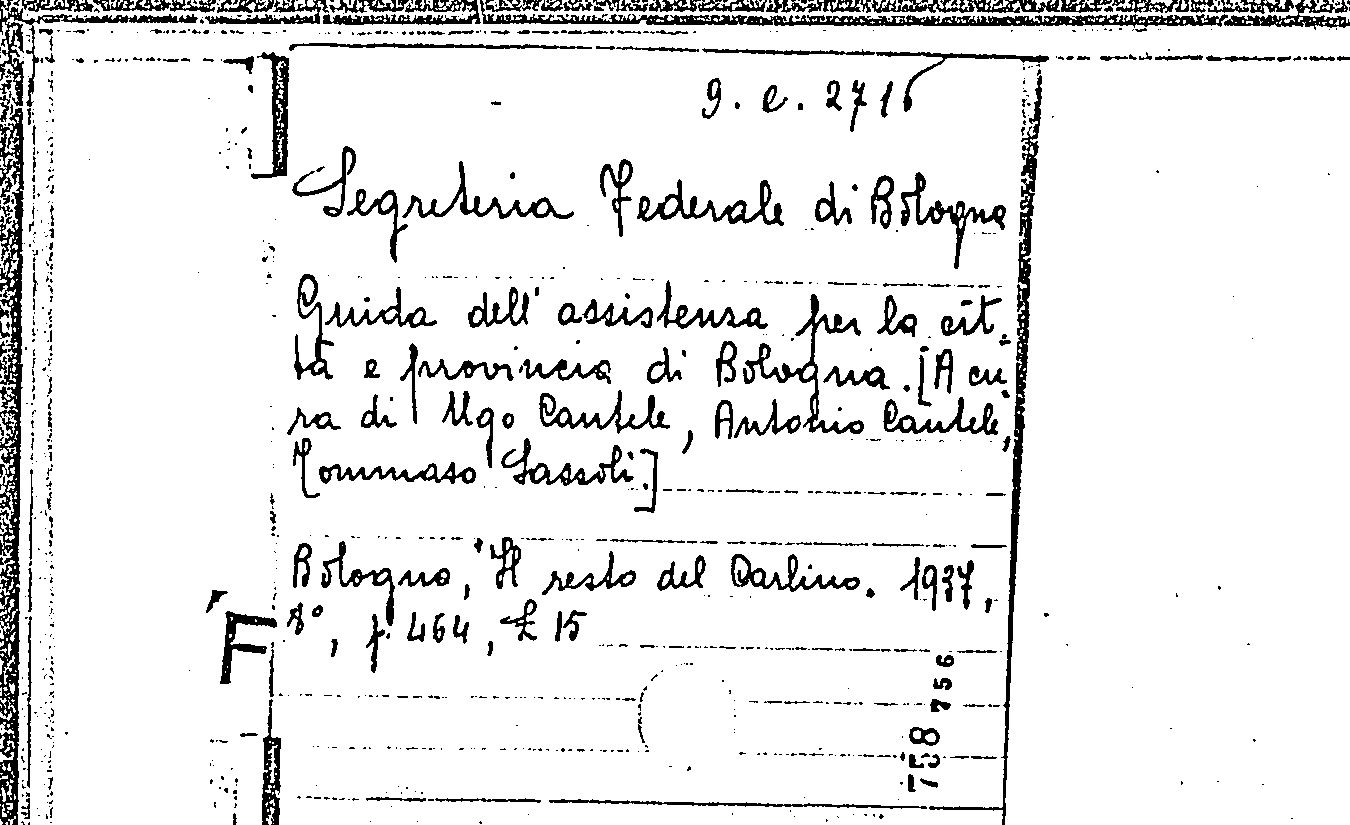 9. e. 2716
Segreteria Federale di Bologna
Guida dell'assistenza per la cit-
tà e provincia di Bologna. [A cu
ra di Ugo Cantele, Antonio Cantele,
Tommaso Sassoli.]
Bologna, Il resto del Carlino. 1937,
8°, p. 464, £ 15
F
758 756